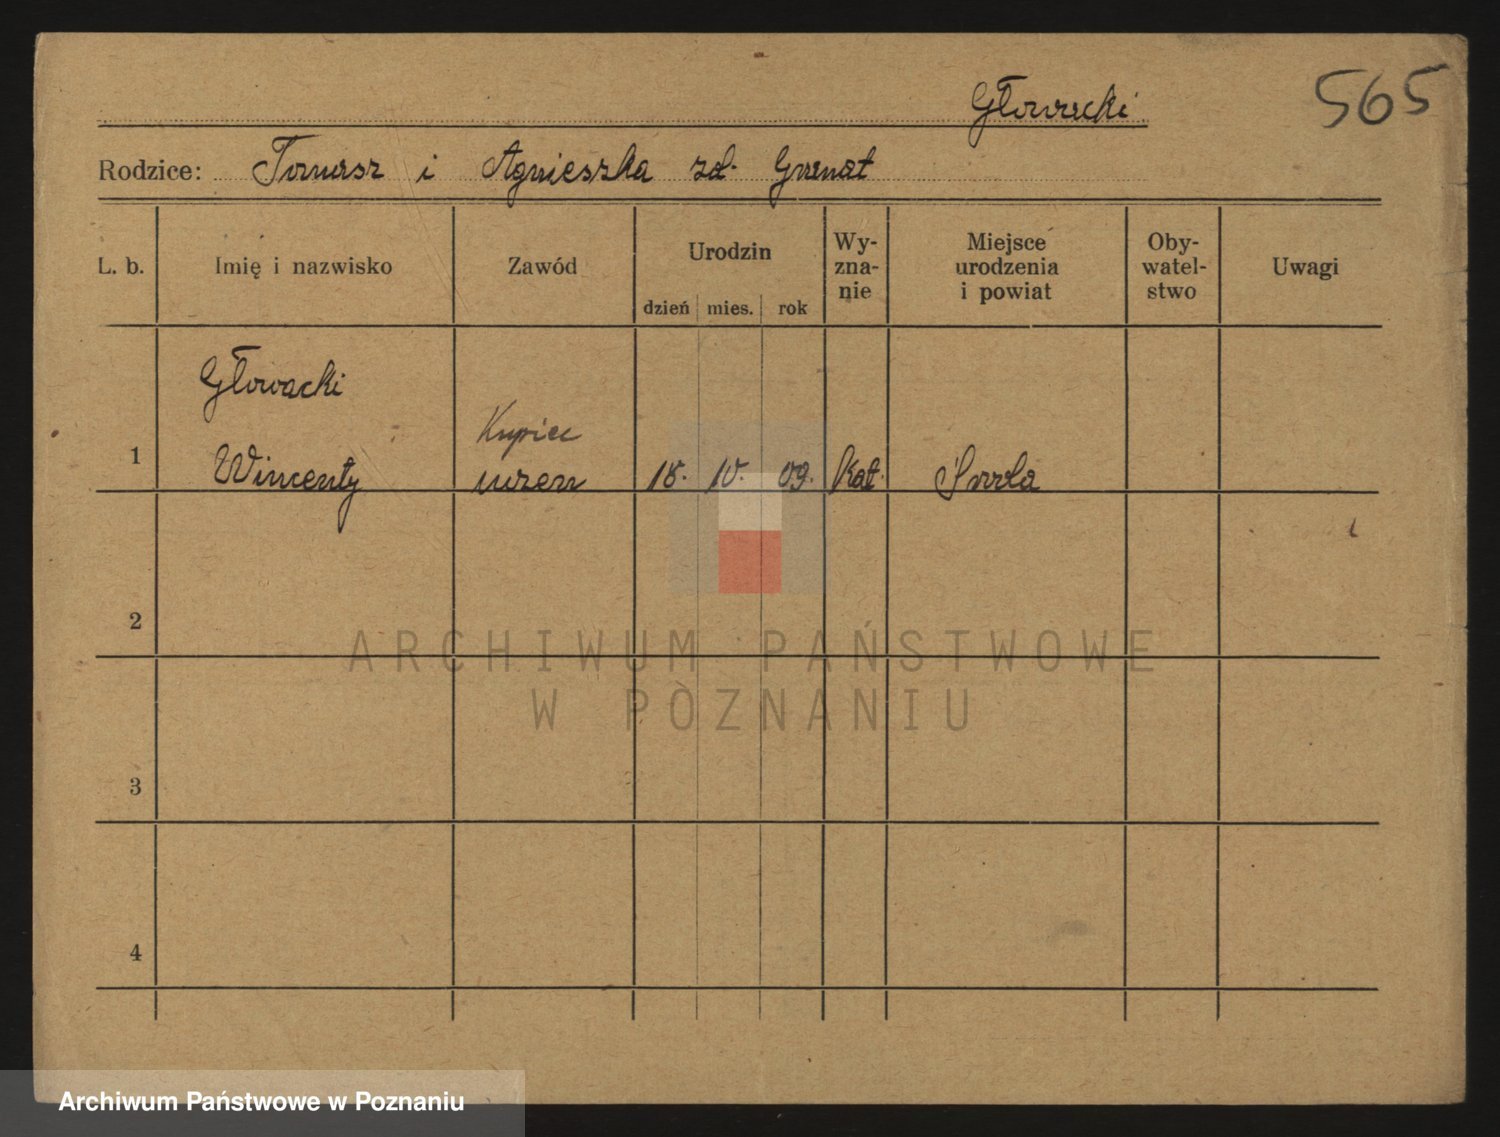 Głowacki
565
Rodzice: Tomasz i Agnieszka zd. Granat
L. b. Imię i nazwisko Zawód Urodzin Wy-zna-nie Miejsce urodzenia i powiat Oby-watel-stwo Uwagi
dzień mies. rok
Głowacki
Kupiec
1 Wincenty uczeń 18. 10. 09. Kat. Środa
2
ARCHIWUM PAŃSTWOWE
W POZNANIU
3
4
Archiwum Państwowe w Poznaniu